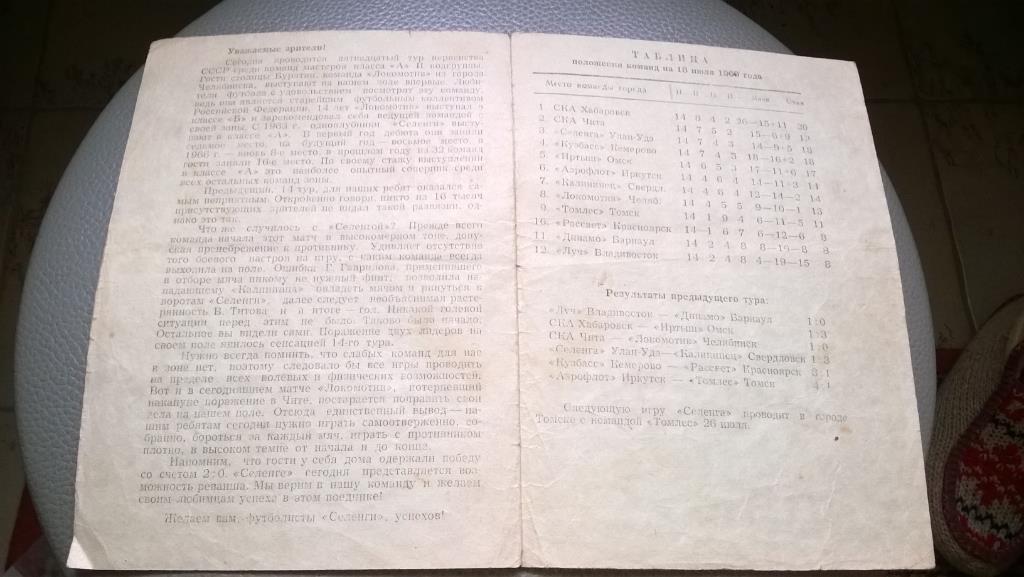 Уважаемые зрители!
Сегодня проводится пятнадцатый тур первенства
СССР среди команд мастеров класса «А» II подгруппы.
Гости столицы Бурятии, команда «Локомотив» из города
Челябинска, выступают на нашем поле впервые. Люби-
тели футбола с удовольствием посмотрят эту команду,
ведь она является старейшим футбольным коллективом
Российской Федерации. 14 лет «Локомотив» выступал в
классе «Б» и зарекомендовал себя ведущей командой
своей зоны. С 1963 г. одноклубники «Селенги» высту-
пают в классе «А». В первый год дебюта они заняли
седьмое место, на будущий год — восьмое место, в
г. — вновь 8-е место, в прошлом году из 32 команд
гости заняли 16-е место. По своему стажу выступлений
в классе «А» это наиболее опытный соперник среди
всех остальных команд зоны.
Предыдущий, 14 тур, для наших ребят оказался са-
мым неприятным. Откровенно говоря, никто из 16 тысяч
присутствующих зрителей не ждал такой развязки, од-
нако это так.
Что же случилось с «Селенгой»? Прежде всего
команда начала этот матч в высокомерном тоне, допу-
ская пренебрежение к противнику. Удивляет отсутствие
того боевого настроя на игру, с каким команда всегда
выходила на поле. Ошибка Г. Гаврилова, применившего
в отборе мяча никому не нужный финт, позволила на-
падающему «Калининца» овладеть мячом и ринуться к
воротам «Селенги», далее следует необъяснимая расте-
рянность В. Титова и в итоге — гол. Никакой голевой
ситуации перед этим не было. Таково было начало.
Остальное вы видели сами. Поражение двух лидеров на
своем поле явилось сенсацией 14-го тура.
Нужно всегда помнить, что слабых команд для нас
в зоне нет, поэтому следовало бы все игры проводить
на пределе всех волевых и физических возможностей.
Вот и в сегодняшнем матче «Локомотив», потерпевший
накануне поражение в Чите, постарается поправить свои
дела на нашем поле. Отсюда единственный вывод — на-
шим ребятам сегодня нужно играть самоотверженно, со-
бранно, бороться за каждый мяч, играть с противником
плотно, в высоком темпе от начала и до конца.
Напомним, что гости у себя дома одержали победу
со счетом 2:0. «Селенге» сегодня представляется воз-
можность реванша. Мы верим в нашу команду и желаем
своим любимцам успеха в этом поединке!
Желаем вам, футболисты «Селенги», успехов!
ТАБЛИЦА
положения команд на 18 июля года
Место команды города И В Н П Мячи Очки
1. СКА Хабаровск 14 8 4 2 26—15+11 20
2. СКА Чита 14 7 5 2 15—6+9 19
3. «Селенга» Улан-Удэ 14 7 4 3 14—9+5 18
4. «Кузбасс» Кемерово 14 7 4 3 18—16+2 18
5. «Иртыш» Омск 14 6 5 3 17—11+6 17
6. «Аэрофлот» Иркутск 14 4 6 4 14—11+3 14
7. «Калининец» Свердл. 14 4 6 4 12—14—2 14
8. «Локомотив» Челяб. 14 4 5 5 9—16—1 13
9. «Томлес» Томск 14 1 9 4 6—11—5 11
10. «Рассвет» Красноярск 14 1 6 7 6—12—6 8
11. «Динамо» Барнаул 14 2 4 8 8—19—8 8
12. «Луч» Владивосток 14 2 4 8 4—19—15 8
Результаты предыдущего тура:
«Луч» Владивосток — «Динамо» Барнаул 1:0
СКА Хабаровск — «Иртыш» Омск 1:3
СКА Чита — «Локомотив» Челябинск 1:0
«Селенга» Улан-Удэ—«Калининец» Свердловск 1:3
«Кузбасс» Кемерово — «Рассвет» Красноярск 3:1
«Аэрофлот» Иркутск — «Томлес» Томск 4:1
Следующую игру «Селенга» проводит в городе
Томске с командой «Томлес» 26 июля.